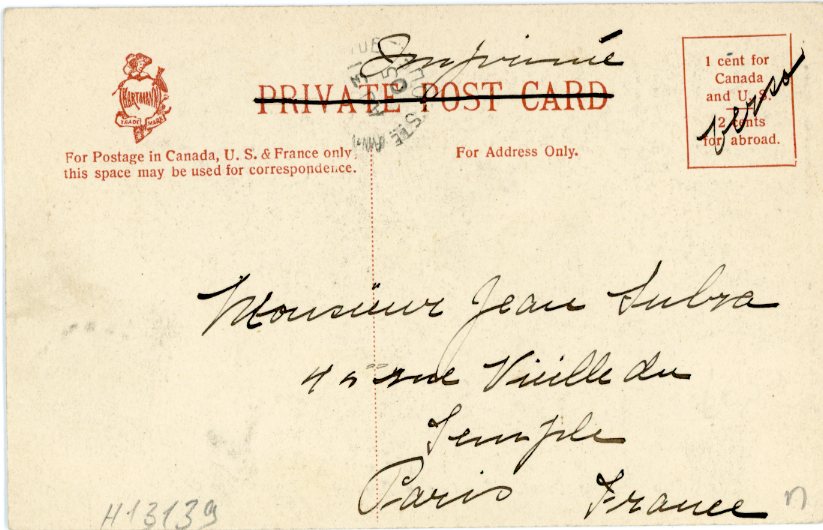 Imprimé
HARTMANN
TRADE MARK
PRIVATE POST CARD
1 cent for
Canada
and U. S.
2 cents
for abroad.
verso
For Postage in Canada, U. S. & France only
this space may be used for correspondence.
For Address Only.
Monsieur Jean Subra
rue Vieille du
Temple
Paris France
H13139
n